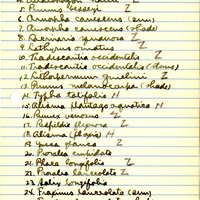 5. Prunus Besseyi Z
6. Amorpha canescens (sun)
7. Amorpha canescens (shade)
8. Z
9. Lathyrus ornatus Z
10. Tradescantia occidentalis Z
11. Tradescantia occidentalis
12. Lithospermum gmelini Z
13. Prunus melanocarpa (shade)
14. Typha latifolia H
15. Alisma plantago aquatica H
16. Rumex venosus Z
17. Z
18. Alisma H
19. Yucca glauca Z
20. Psoralea
21. Phlox longifolia Z
22. Psoralea lanceolata Z
23. Salix longifolia
24. Fraxinus lanceolata (sun)